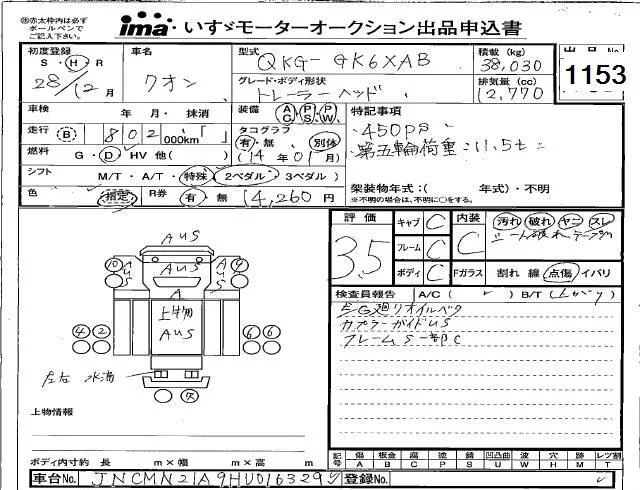 ※赤太枠内は必ず
ボールペンで
ご記入下さい。
ima いすゞモーターオークション出品申込書
初度登録 S・H・R 28/12月
車名 クオン
型式 QKG-GK6XAB
積載 (kg) 38,030
出品No.
1153
グレード・ボディ形状 トレーラーヘッド
排気量 (cc) 12,770
車検 年 月・抹消
装備 AC PS PW
特記事項
走行 B 802 000km 「 」
タコグラフ 有・無 別体
・450ps
燃料 G・D・HV 他( )
(14年01月)
・第五輪荷重:11.5t
シフト M/T・A/T・特殊(2ペダル/3ペダル)
架装物年式:( 年式)・不明
※不明の場合は、不明に○をする。
色 指定 R券 有・無 14,260円
評価 3.5
キャブ C
フレーム C
ボディ C
内装 C
汚れ 破れ ヤニ スレ
シート破れ
Fガラス 割れ 線 点傷 イバリ
AUS
⑩ AUS AUS AUS ⑨
A
上物
AUS
④ ② 6 6
左右 水滴
上物情報
検査員報告 A/C( ✓ ) B/T( )
E/G廻リオイルベタ
カプラーガイドUS
フレームS一部C
ボディ内寸約 長 m×幅 m×高 m
記号 傷A 板金B 腐C 塗P 錆S 凹凸曲U 波W 穴H 跡M レツ割T
車台No. JNCMN21A9HU016329
登録No.